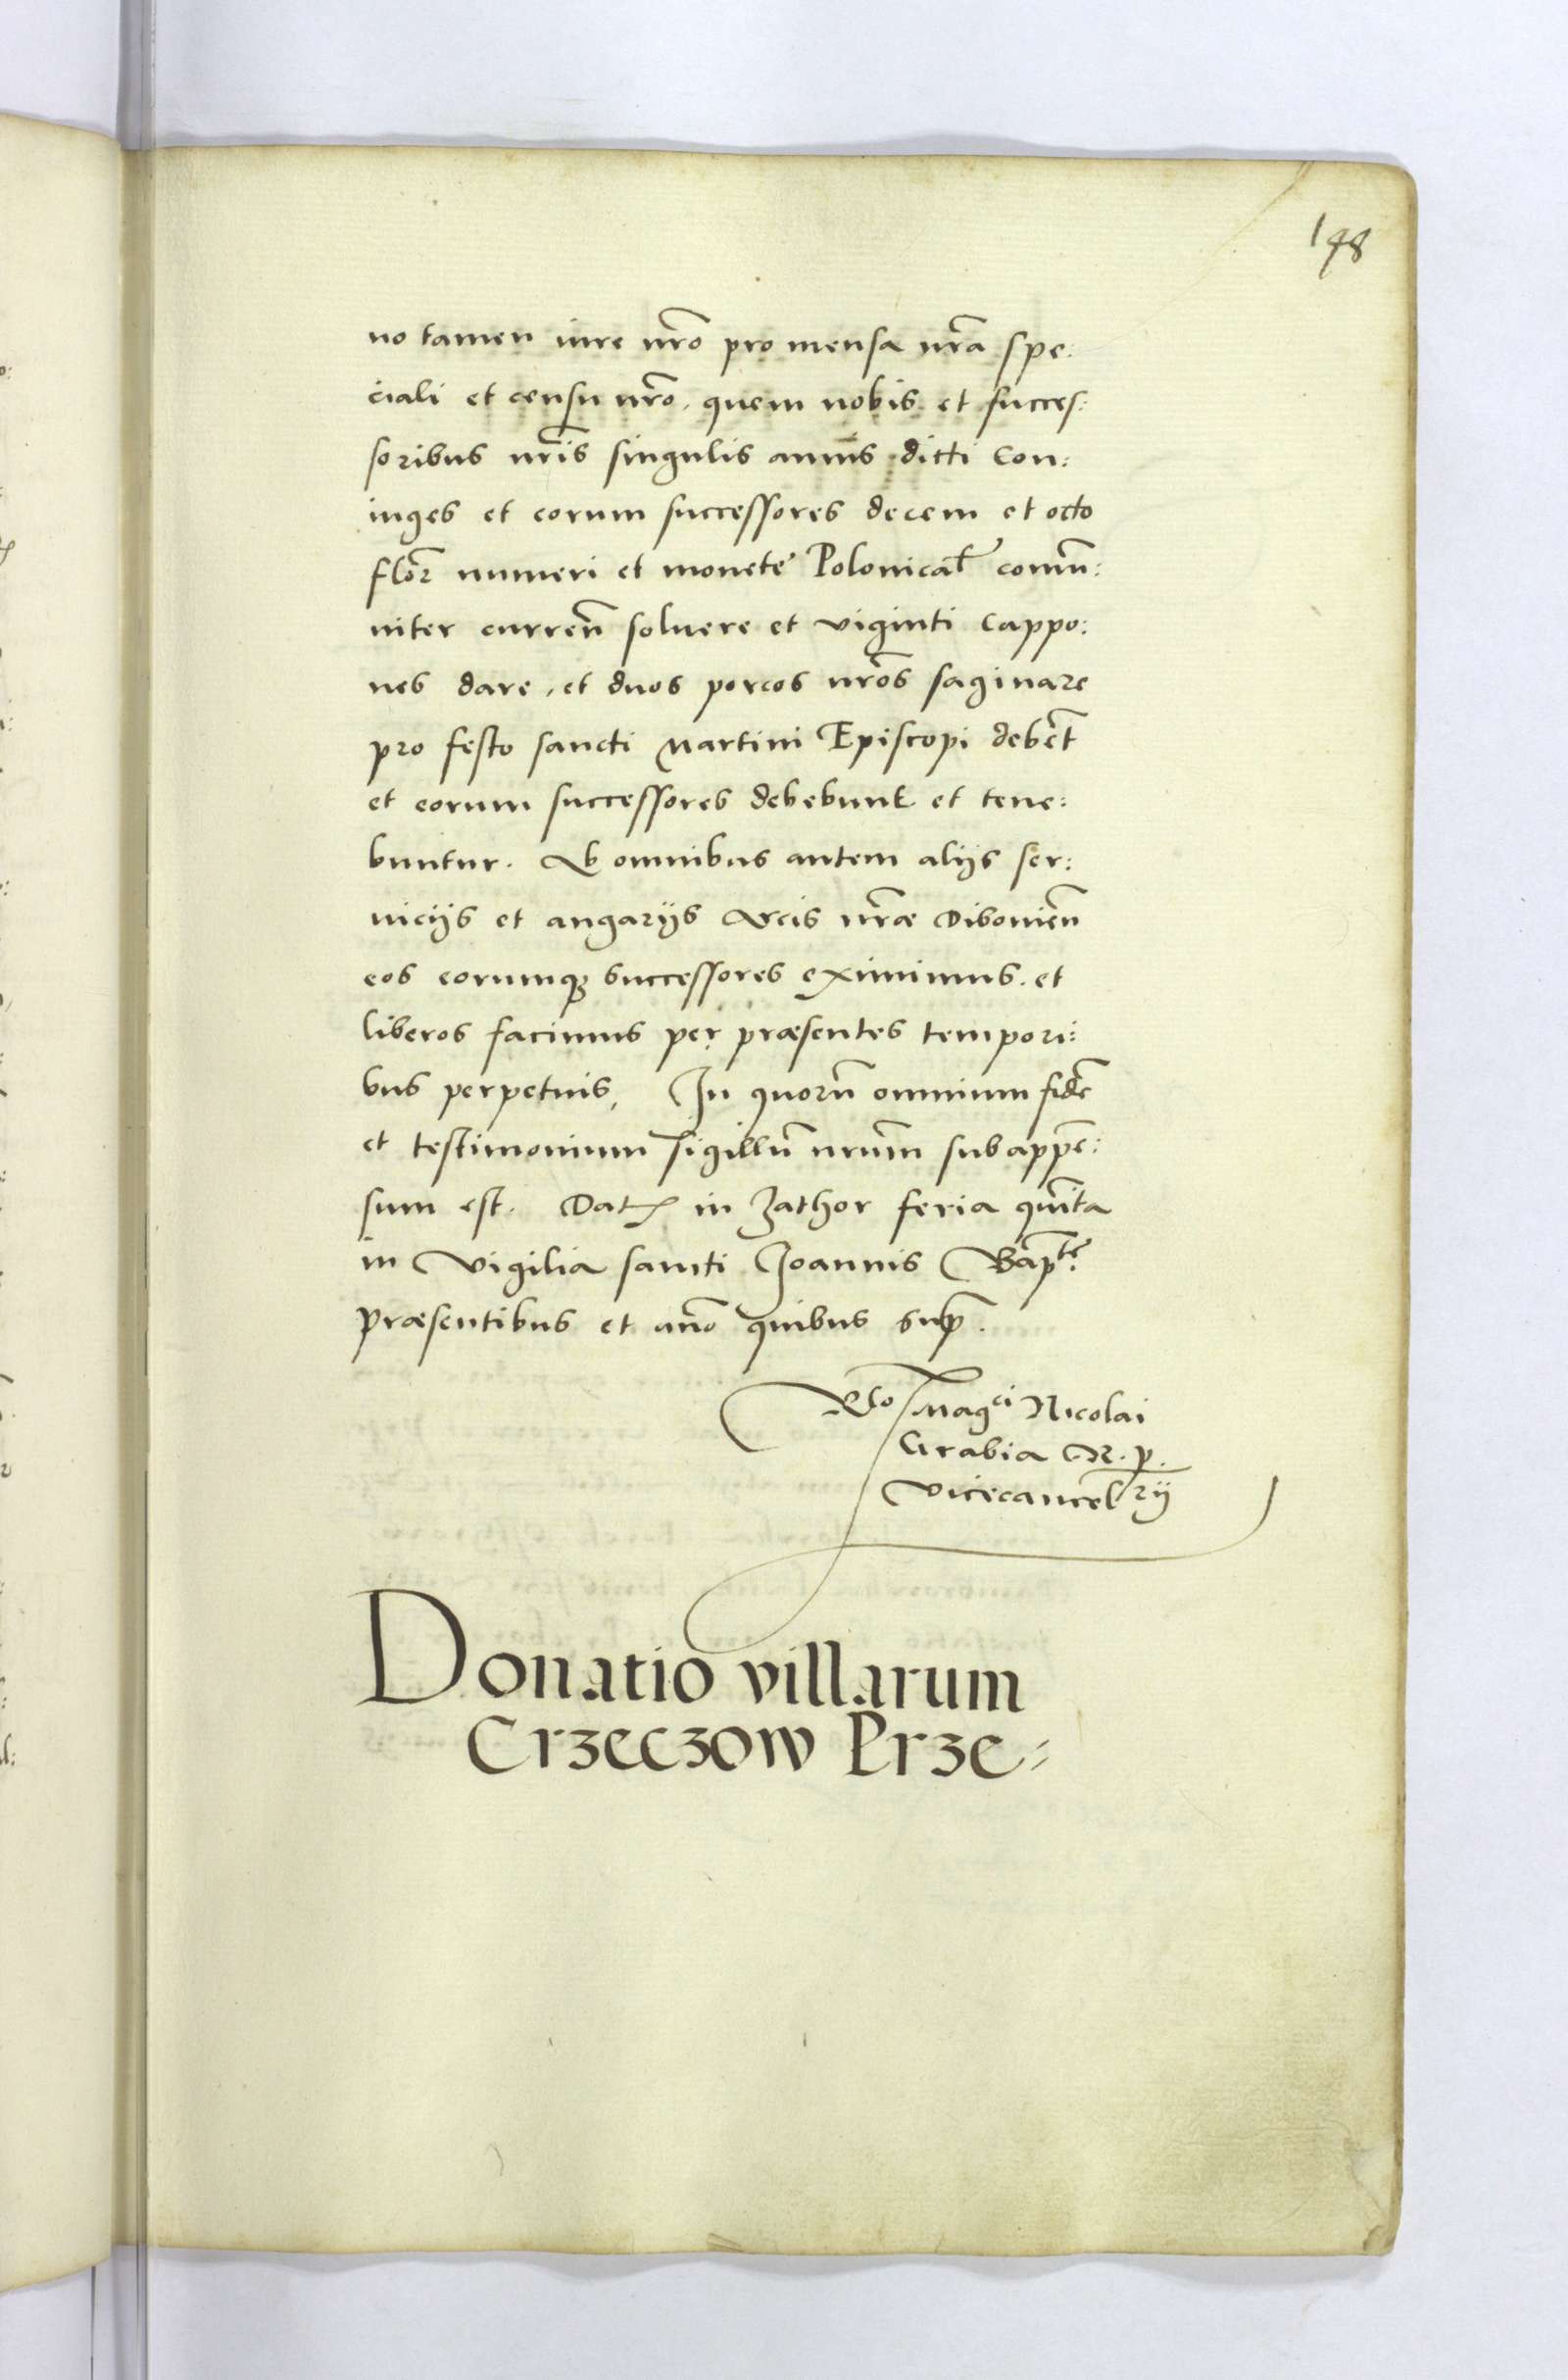 198
no tamen iure nr̃o pro mensa nr̃a spe:
ciali et censu nr̃o, quem nobis et succes:
soribus nr̃is singulis annis dicti Con:
iuges et eorum successores decem et octo
flor̃ numeri et monete Polonical̃ comũ:
niter curreñ soluere et viginti Cappo:
nes dare, et duos porcos nr̃os saginare
pro festo sancti Martini Episcopi debẽt
et eorum successores debebunt et tene:
buntur. Ab omnibus autem alijs ser:
uicijs et angarijs Arcis nr̃æ Diboнieñ
eos eorumq3 successores eximimus. et
liberos facimus per præsentes tempori:
bus perpetuis, In quorũ omnium fidẽ
et testimonium sigillũ nrũm subappẽ:
sum est. Dat in Zathor feria quĩta
in Vigilia sancti Joannis Bap̃te
præsentibus et año quibus sup̃.
Rto Magci Nicolai
Grabia R. P.
Vicecancel rij
Donatio villarum
Crzeczow Prze=